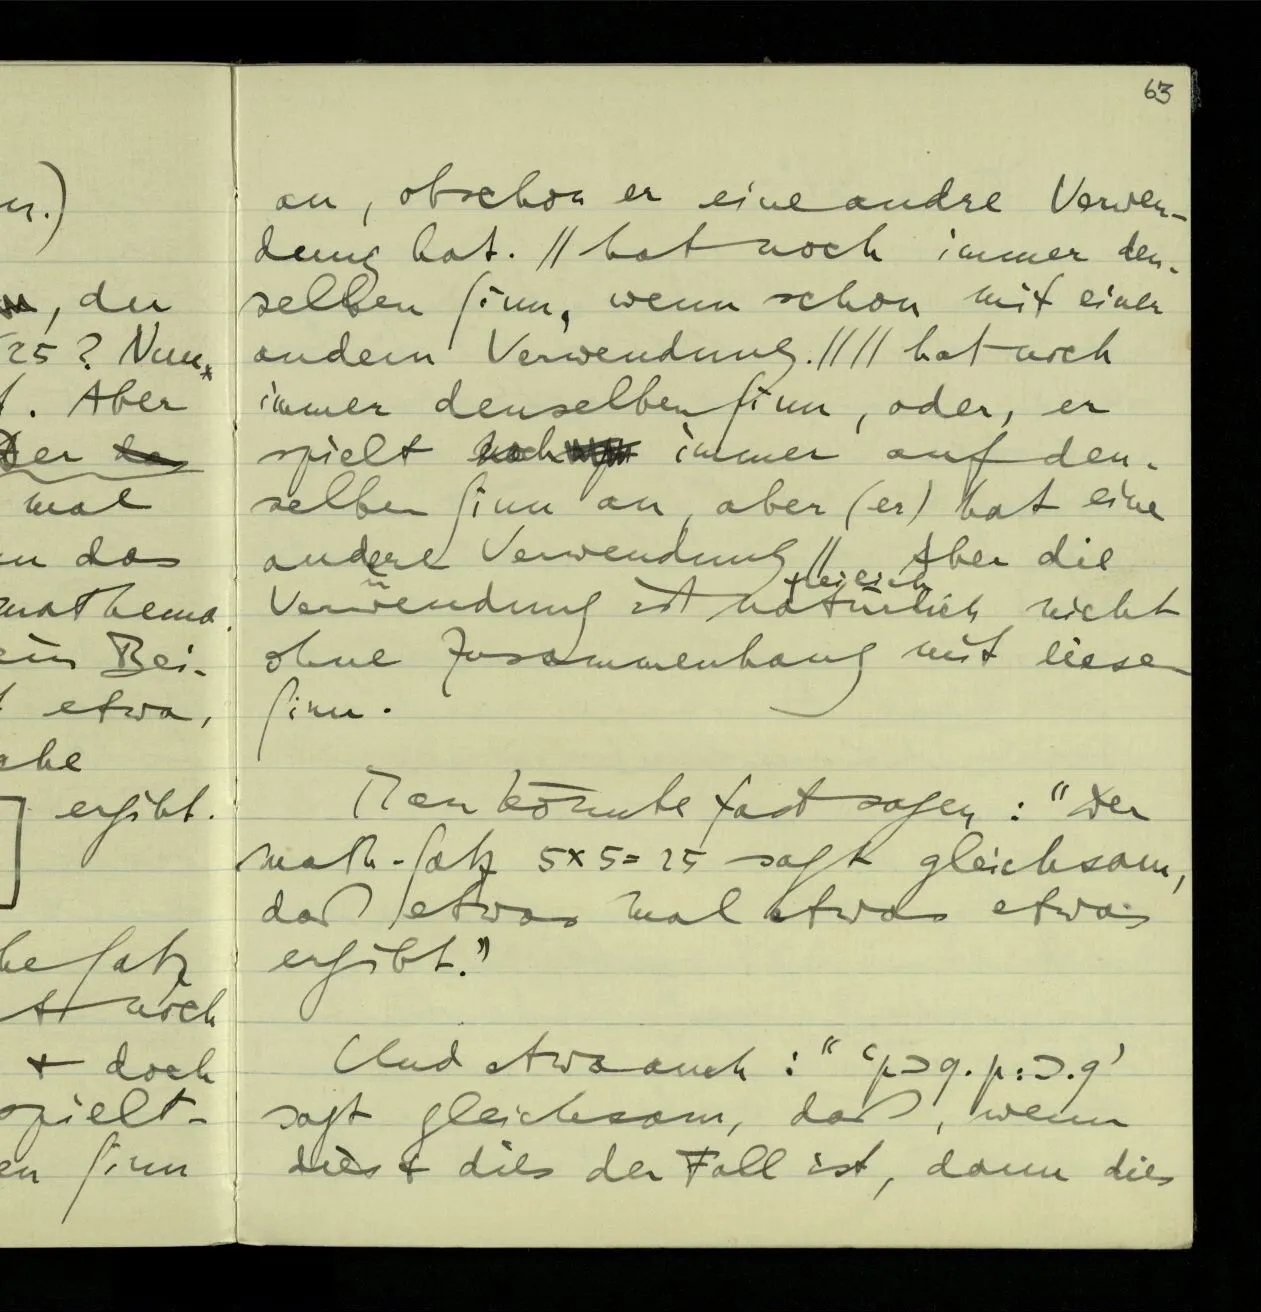 63
n.)
, der
25? Nun,
. Aber
Der
mal
das
mathema-
ein Bei-
etwa,
ergibt.
he Satz
noch
+ doch
spielt-
en Sinn
an, obschon er eine andre Verwen-
dung hat. // hat noch immer den-
selben Sinn, wenn schon mit einer
andern Verwendung. //// hat noch
immer denselben Sinn, oder, er
spielt noch immer auf den-
selben Sinn an, aber (er) hat eine
andere Verwendung // Aber die
gleich
Verwendung ist natürlich nicht
ohne Zusammenhang mit diesem
Sinn.
Man könnte fast sagen: “Der
math. Satz 5×5=25 sagt gleichsam,
daß etwas mal etwas etwas
ergibt.”
Und etwa auch: “‘p⊃q.p:⊃.q’
sagt gleichsam, daß, wenn
dies & dies der Fall ist, dann dies